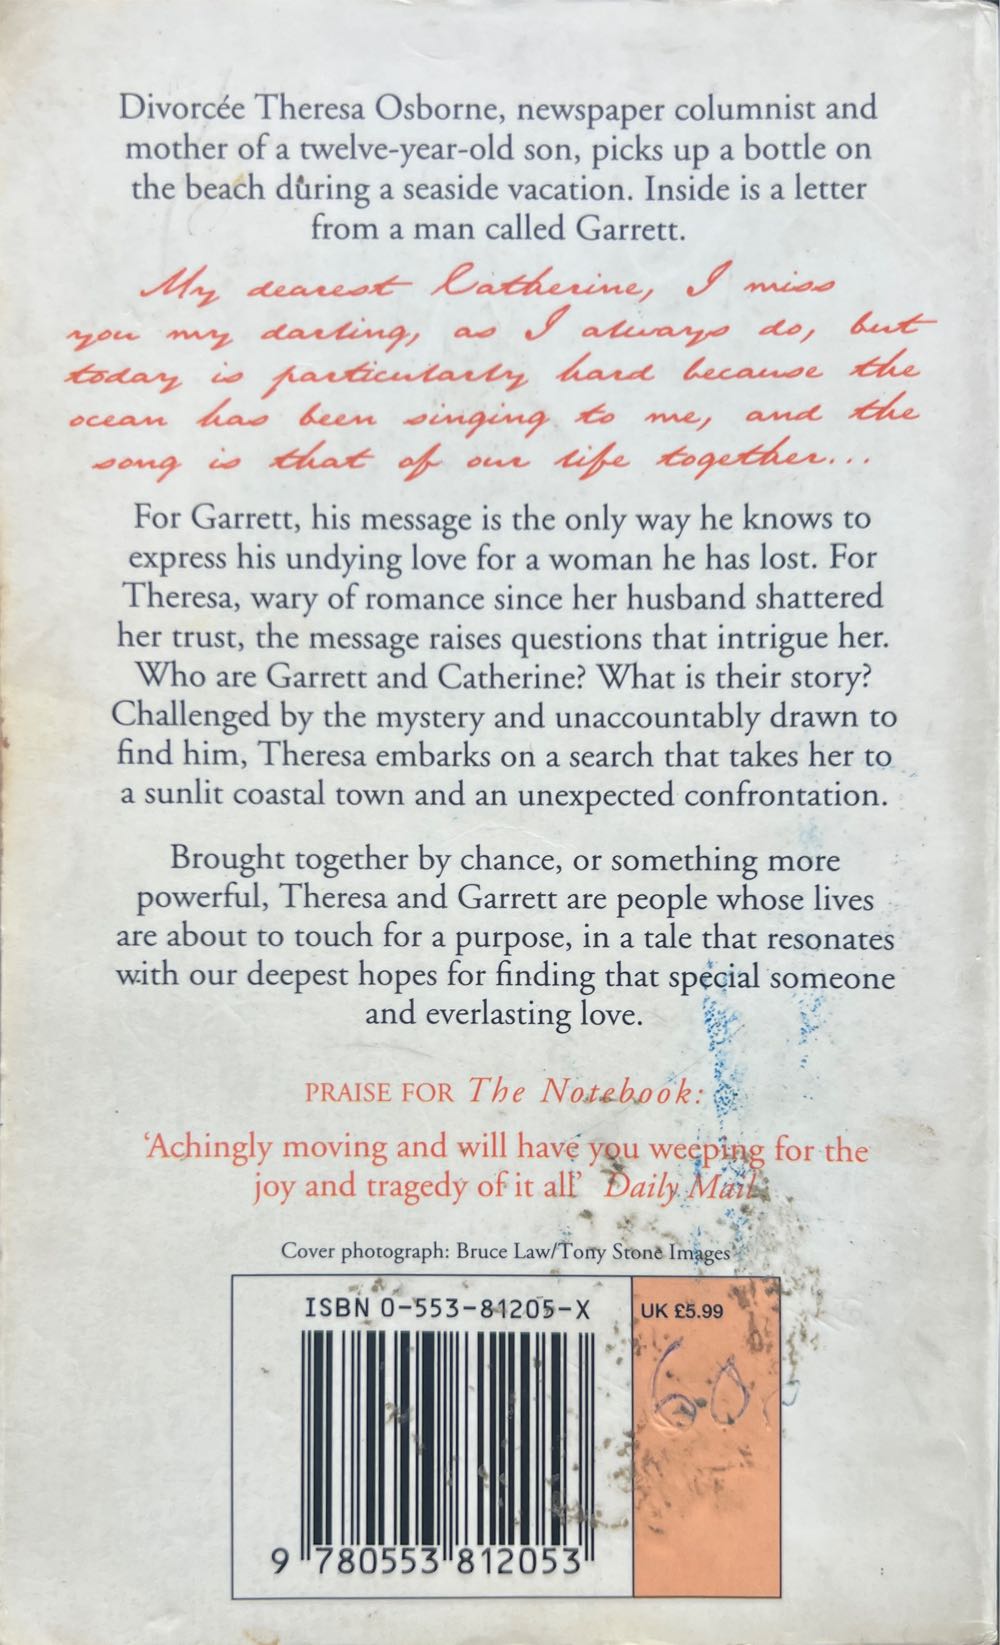 Divorcée Theresa Osborne, newspaper columnist and
mother of a twelve-year-old son, picks up a bottle on
the beach during a seaside vacation. Inside is a letter
from a man called Garrett.
My dearest Catherine, I miss
you my darling, as I always do, but
today is particularly hard because the
ocean has been singing to me, and the
song is that of our life together...
For Garrett, his message is the only way he knows to
express his undying love for a woman he has lost. For
Theresa, wary of romance since her husband shattered
her trust, the message raises questions that intrigue her.
Who are Garrett and Catherine? What is their story?
Challenged by the mystery and unaccountably drawn to
find him, Theresa embarks on a search that takes her to
a sunlit coastal town and an unexpected confrontation.
Brought together by chance, or something more
powerful, Theresa and Garrett are people whose lives
are about to touch for a purpose, in a tale that resonates
with our deepest hopes for finding that special someone
and everlasting love.
PRAISE FOR The Notebook:
‘Achingly moving and will have you weeping for the
joy and tragedy of it all’ Daily Mail
Cover photograph: Bruce Law/Tony Stone Images
ISBN 0-553-81205-X
UK £5.99
60
9 780553 812053